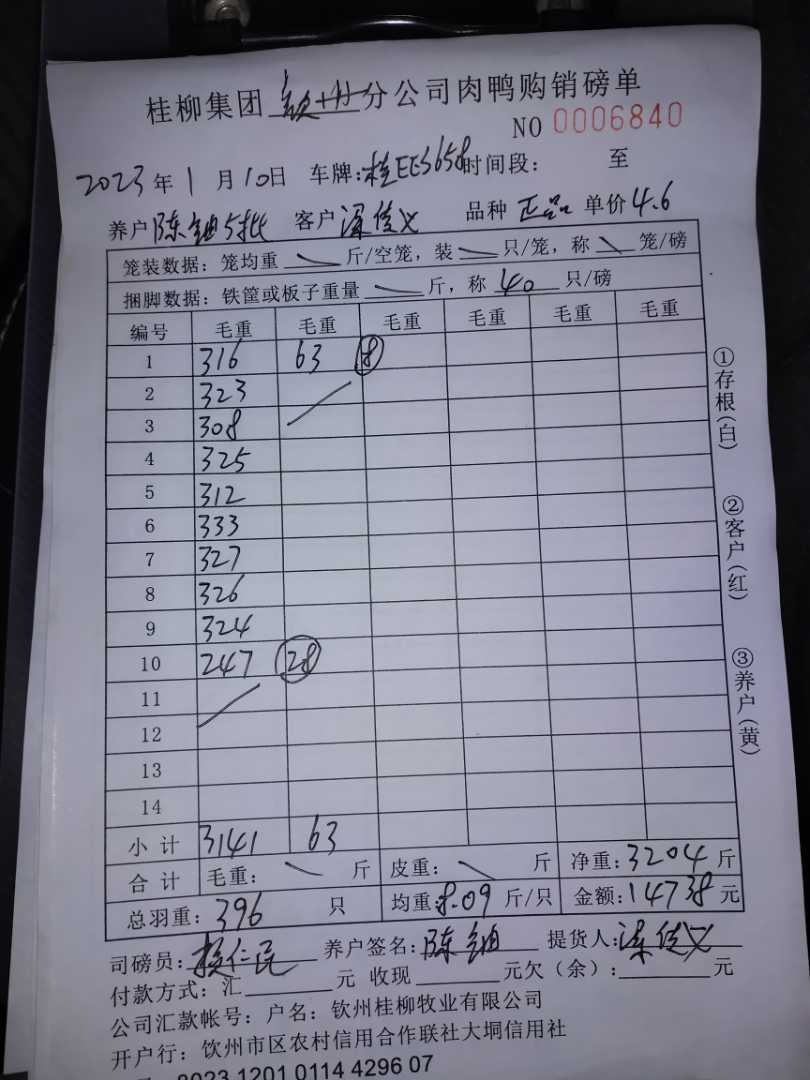 桂柳集团钦州分公司肉鸭购销磅单
NO 0006840
2023年1月10日 车牌:桂EES658时间段: 至
养户陈钿5批 客户梁传义 品种正品 单价4.6
笼装数据: 笼均重 斤/空笼, 装 只/笼, 称 笼/磅
捆脚数据: 铁筐或板子重量 斤, 称40只/磅
编号 毛重 毛重 毛重 毛重 毛重 毛重
1 316 63 8
2 323
3 308
4 325
5 312
6 333
7 327
8 326
9 324
10 247 28
11
12
13
14
小计 3141 63
合计 毛重: 斤 皮重: 斤 净重:3204斤
总羽重:396只 均重:8.09斤/只 金额:14738元
司磅员: 仁民 养户签名:陈钿 提货人:梁传义
付款方式: 汇 元 收现 元欠(余): 元
公司汇款帐号: 户名: 钦州桂柳牧业有限公司
开户行: 钦州市区农村信用合作联社大垌信用社
8023 1201 0114 4296 07
①存根(白)
②客户(红)
③养户(黄)